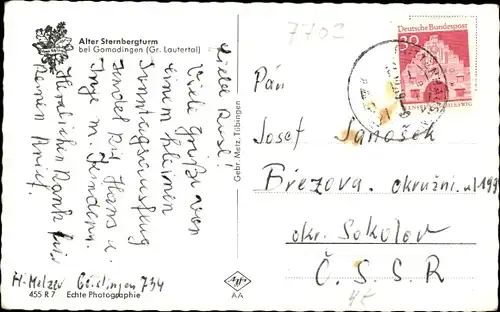 Alter Sternbergturm
bei Gomadingen (Gr. Lautertal)
Viele Grüße von
einem kleinen
Sonntagsausflug
sendet Dir Hans u.
Inge m. Kindern.
Herzlichen Dank für
Deinen Brief.
H. Melzer
455 R 7 Echte Photographie
Gebr. Metz, Tübingen
Agfa
AA
7702
Deutsche Bundespost
30
Pán
Josef Janošek
Březova. okružní.
okr. Sokolov
Č. S. S. R